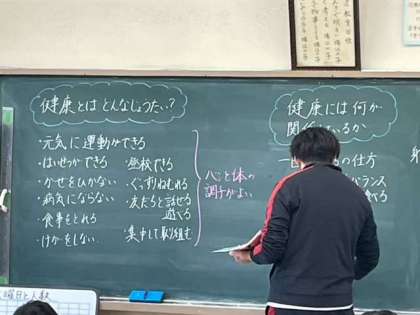 健康とは どんなじょうたい?
・元気に運動ができる
・はいせつができる
・かぜをひかない
・病気にならない
・食事をとれる
・けがをしない
・登校できる
・ぐっすりねむれる
・友だちと話せる
遊べる
・集中して取り組む
心と体の
調子がよい
健康には何が
関係 いるか
の仕方
バランス
べる
曜日と人数